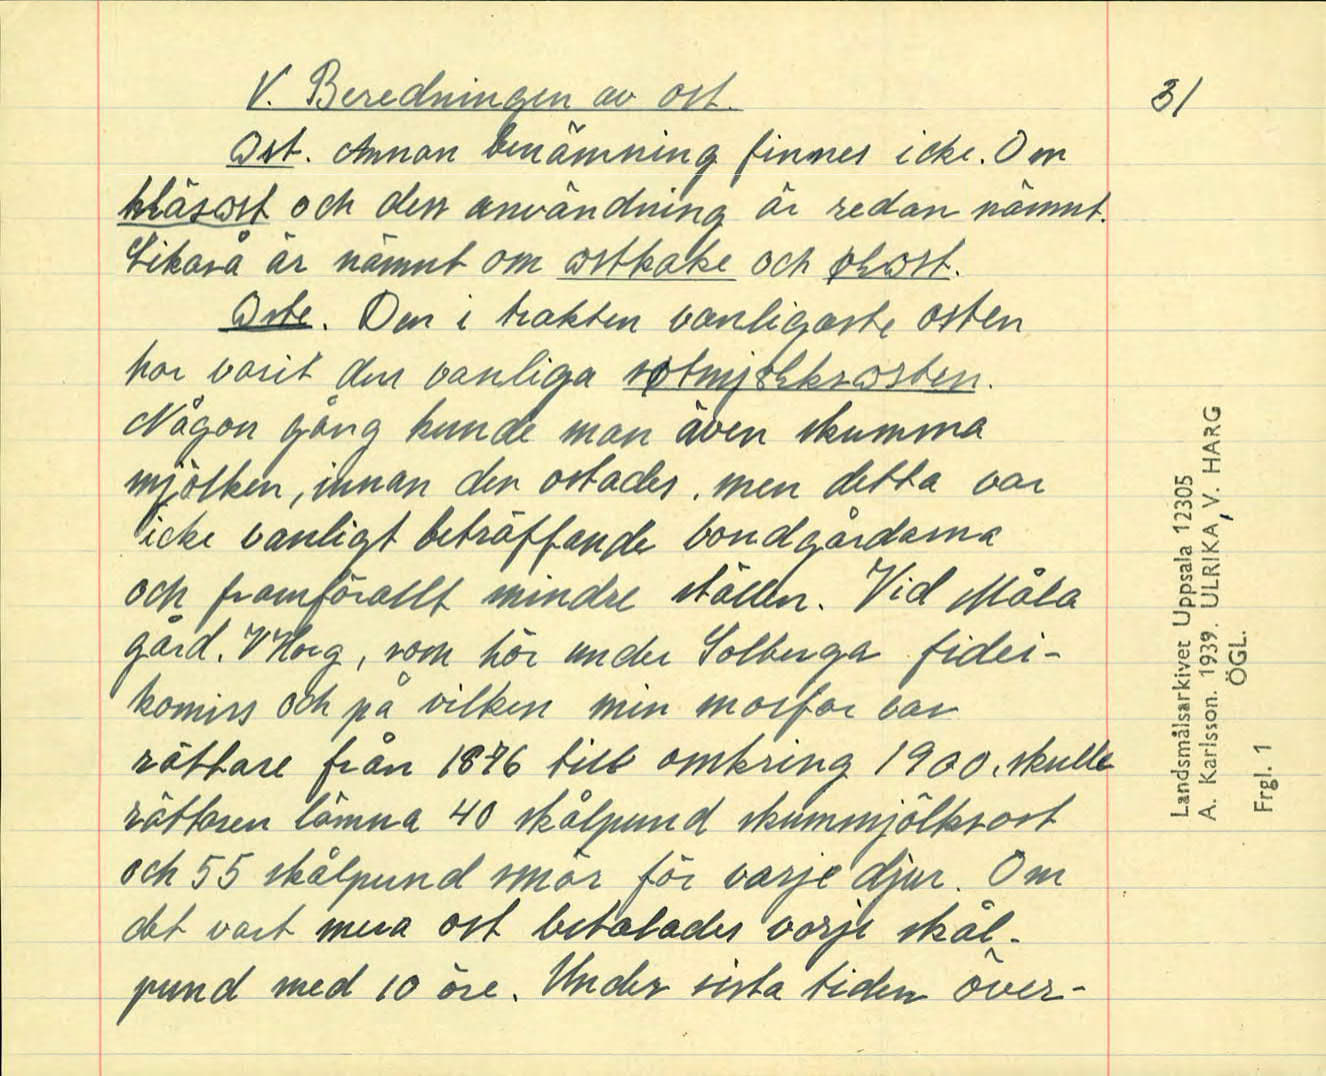 V. Beredningen av ost.
31
Ost. Annan benämning finnes icke. Om
kläsost och dess användning är redan nämnt.
Likaså är nämnt om ostkake och ølost.
Oste. Den i trakten vanligaste osten
har varit den vanliga søtmjølksosten.
Någon gång kunde man även skumma
mjölken, innan den ostades, men detta var
icke vanligt beträffande bondgårdarna
och framförallt mindre ställen. Vid Måla
gård, V Harg, som hör under Solberga fidei-
komiss och på vilken min morfar var
rättare från 1876 till omkring 1900, skulle
rättaren lämna 40 skålpund skummjölksost
och 55 skålpund smör för varje djur. Om
det vart mera ost betalades varje skål-
pund med 10 öre. Under sista tiden över-
Landsmålsarkivet Uppsala 12305
A. Karlsson. 1939. ULRIKA, V. HARG
ÖGL.
Frgl. 1